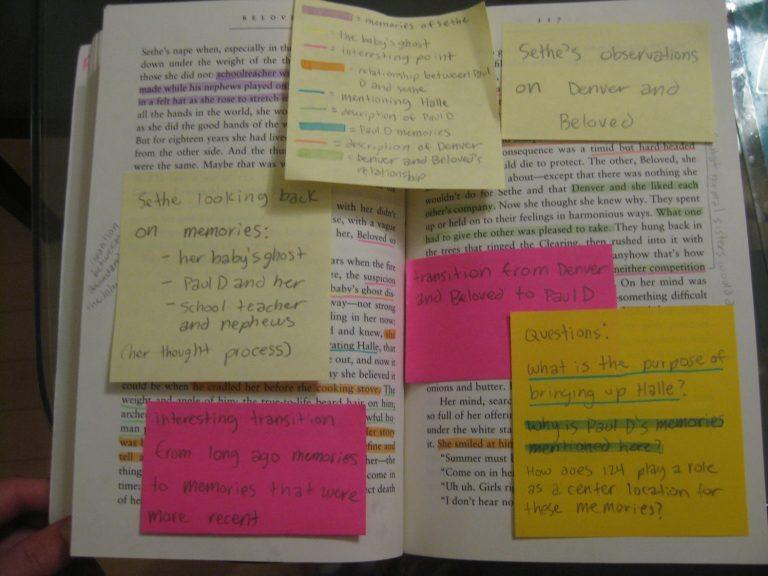 BELOV
117
= memories of Sethe
= the baby's ghost
= interesting point
= relationship between Paul
D and Sethe
= mentioning Halle
= description of Paul D
= Paul D memories
= description of Denver
= Denver and Beloved's
relationship
Sethe's observations
on Denver and
Beloved
Sethe's nape when, especially in th
down under the weight of the th
those she did not: schoolteacher w
made while his nephews played on
in a felt hat as she rose to stretch
all the hands in the world, she wo
as she did the good hands of the w
But for eighteen years she had live
from the other side. And the thu
were the same. Maybe that was w
Sethe looking back
on memories:
- her baby's ghost
- Paul D and her
- School teacher
and nephews
(her thought process)
with her didn't
se, with a vague
her, Beloved so
ars when the fire
e, the suspicion
baby's ghost dis-
way—not strong
ling in her now:
d and knew, she
ating Halle, that
e out, and now it
ay she believed it
could be when he cradled her before the cooking stove. The
weight and angle of him; the true-to-life beard hair on him;
arche
human
was b
tell a
thing
time
of he
wful hu-
Her story
fine and
her—the
come in
ect death
interesting transition
from long ago memories
to memories that were
more recent
onsequence was a timid but hard-headed
ld die to protect. The other, Beloved, she
about—except that there was nothing she
wouldn't do for Sethe and that Denver and she liked each
other's company. Now she thought she knew why. They spent
up or held on to their feelings in harmonious ways. What one
had to give the other was pleased to take. They hung back in
the trees that ringed the Clearing, then rushed into it with
anyhow that's how
neither competition
On her mind
something difficult
transition from Denver
and Beloved to Paul D
onions and butter.
Her mind, searc
so full of her offerin
under the white sta
it. She smiled at him
"Summer must b
"Come on in her
"Uh uh. Girls ri
"I don't hear no
Questions:
what is the purpose of
bringing up Halle?
Why is Paul D's memories
mentioned here?
How does 124 play a role
as a center location for
these memories?